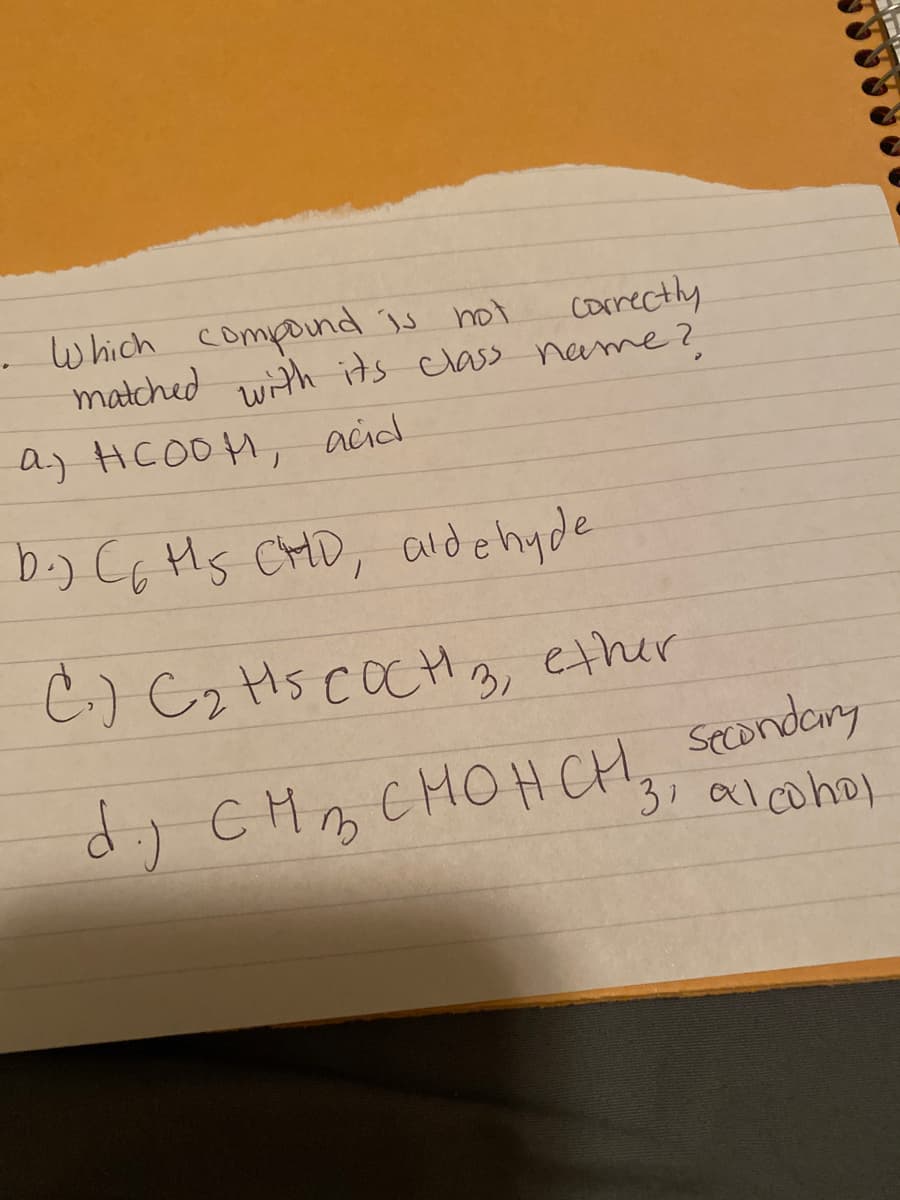 . Which compound is not correctly
matched with its class name?
a.) HCOOH, acid
b.) C6H5 CHO, aldehyde
C.) C2H5COCH3, ether
d.) CH3CHOHCH3, Secondary
alcohol